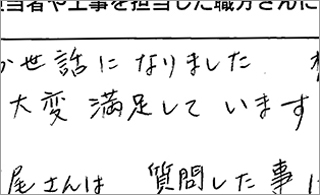 当者や工事を担当した職方さんに
世話になりました
大変満足しています
尾さんは 質問した事